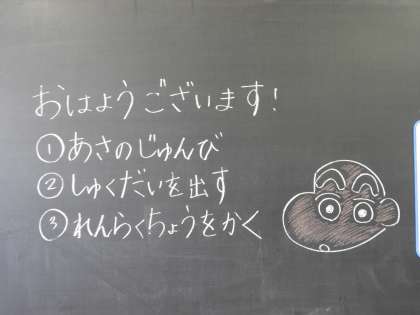 おはようございます!
①あさのじゅんび
②しゅくだいを出す
③れんらくちょうをかく